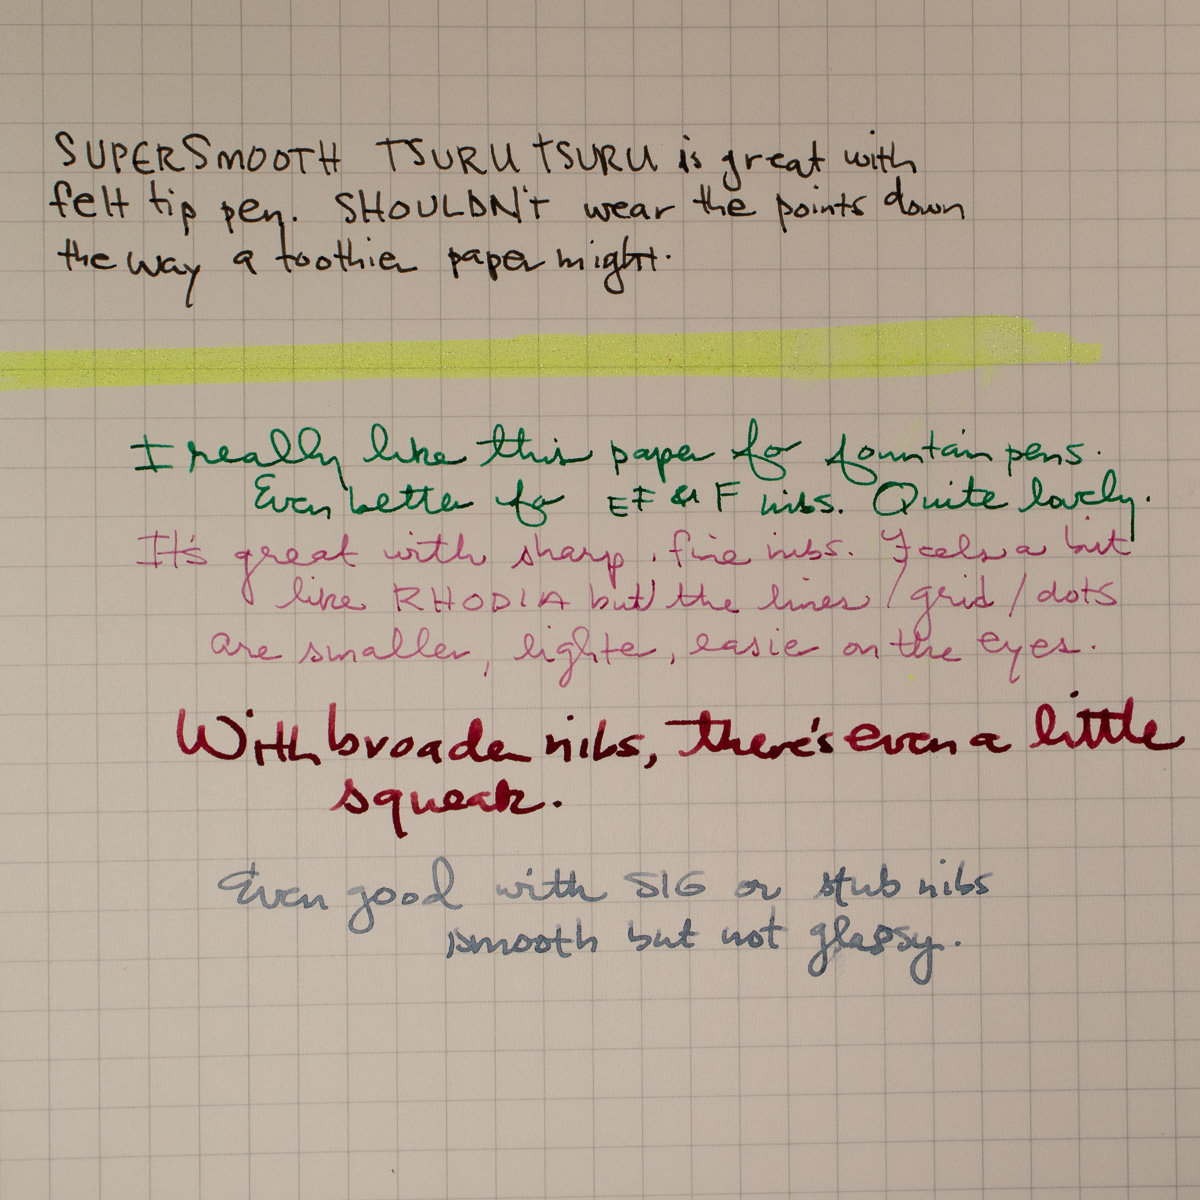 SUPERSMOOTH TSURU TSURU is great with
felt tip pen. SHOULDN't wear the points down
the way a toothier paper might.
I really like this paper for fountain pens.
Even better for EF & F nibs. Quite lovely.
It's great with sharp, fine nibs. Feels a bit
like RHODIA but the lines/grid/dots
are smaller, lighter, easier on the eyes.
With broader nibs, there's even a little
squeak.
Even good with SIG or stub nibs
smooth but not glassy.